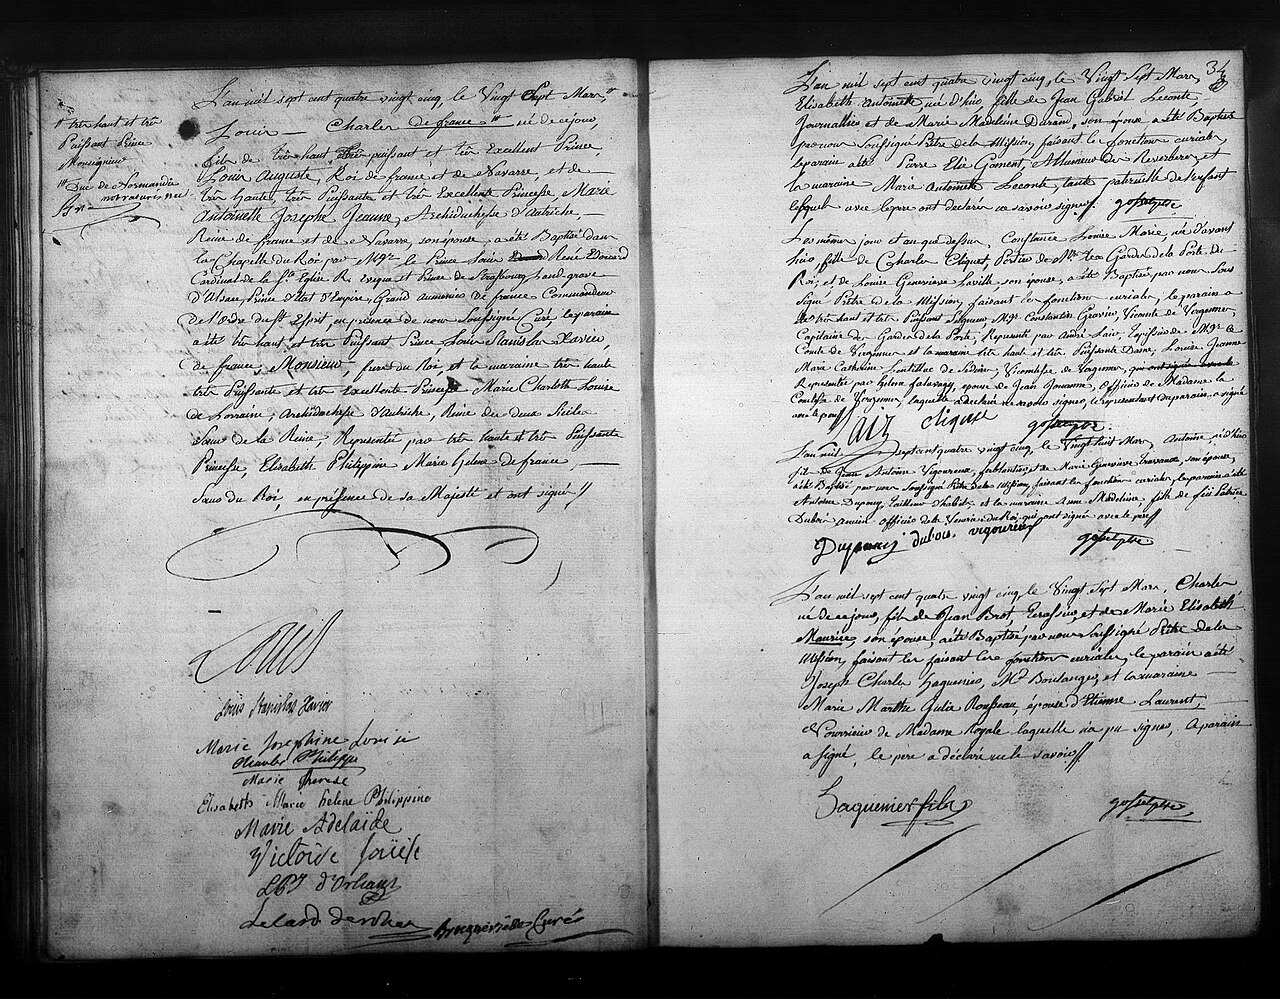 L'an mil sept cent quatre vingt cinq, le Vingt Sept Mars,
Louis – Charles de france né de ce jour,
fils de très haut très puissant et très Excellent Prince,
Louis Auguste, Roi de france et de Navarre, et de
très haute, très Puissante et très Excellente Princesse, Marie
Antoinette Josephe Jeanne, Archiduchesse d'Autriche, –
Reine de france et de Navarre, son épouse, a été Baptisé dans
la Chapelle du Roi par Mgr. le Prince Louis René Edouard
Cardinal de la Ste. Eglise R. Evêque et Prince de Strasbourg Land-grave
d'Alsace, Prince d'Etat d'Empire, Grand Aumonier de france, Commandeur
de l'ordre du St. Esprit, en presence de nous Soussigné Curé, le parain
a été très haut et très Puissant Prince, Louis Stanislas Xavier
de france, Monsieur, frere du Roi, et la maraine très haute
très Puissante et très excellente Princesse Marie Charlotte Louise
de Lorraine, Archiduchesse d'Autriche, Reine des deux Siciles
Sœur de la Reine, Représentée par très haute et très Puissante
Princesse, Elisabeth Philippine Marie helene de france, —
Sœur du Roi, en présence de sa Majesté et ont signé
très haut et très
Puissant Prince
Monseigneur
Duc de Normandie
Louis
Louis Stanislas Xavier
Marie Josephine Louise
Charles Philippe
Marie Therese
Elisabeth Marie helene Philippine
Marie Adelaïde
Victoire Louise
L.P.J d'Orleans
Brocqueville Curé
34
L'an mil sept cent quatre vingt cinq, le Vingt Sept Mars,
Elisabeth Antoinette, né d'hier, fille de Jean Gabriel Leconte
Journallier et de Marie Madeleine Durand, son épouse a été Baptisée
par nous Soussigné Prêtre de la Mission, faisant les fonctions curiales,
le parain a été Pierre Elie Goment, Allumeur de Reverberes, et
la maraine Marie Antoinette Leconte, tante paternelle de l'enfant
lesquels avec le pere ont declaré ne savoir signer. gosselpre
Les même jour et an que dessus, Constance Louise Marie, née d'avant
hier, fille de Charles Cliquet, Portier de Mrs. les Gardes de la Porte du
Roi, et de Louise Genevieve Laville son épouse, a été Baptisée par nous Sous
signé Prêtre de la Mission, faisant les fonctions curiales, le parain a
été très haut et très Puissant Seigneur Mgr. Constantin Gravier, Vicomte de Vergennes,
Capitaine des Gardes de la Porte, Représenté par André Laiz, Tapissier de Mgr. le
Comte de Vergennes et la maraine très haute et très Puissante Dame, Louise Jeanne
Marie Catherine Lentillac de Sedière, Vicomtesse de Vergennes,
Représentée par, epouse de Jean Jouanne, officier de Madame la
Comtesse de Vergennes, laquelle a declaré ne savoir signer, le représentant du parain, a signé
avec le pere
Laiz cliquet gosselpre
L'an mil Sept cent quatre vingt cinq, le Vingt huit Mars, Antoine, né d'hier
fils de Jean Antoine Vigoureux, ferblantier, et de Marie Genevieve, son épouse,
a été Baptisé par nous soussigné Prêtre de la Mission, faisant les fonctions curiales, le parain a été
Antoine Dupouy, tailleur d'habits, et la maraine Anne Madeleine, fille de feu
Dubois ancien officier de la Venerie du Roi, qui ont signé avec le pere
Dupouy dubois. vigoureux gosselpre
L'an mil sept cent quatre vingt cinq, le Vingt Sept Mars, Charles
né de ce jour, fils de Jean Brot, Terassier, et de Marie Elisabeth
Maurice, son épouse, a été Baptisé par nous Soussigné Prêtre de la
Mission, faisant les faisant les fonctions curiales, le parain a été
Joseph Charles haguenier, Md. Boulanger, et la maraine
Marie Marthe Julie Rousseau, épouse d'Etienne Laurent,
Pourvoieur de Madame Royale laquelle n'a pu signer, le parain
a signé, le père a déclaré ne le savoir
haguenier fils gosselpre